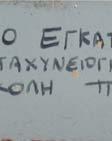 Ο ΕΓΚΑΤ
ΤΑΧΥΝΕΙΟΓΡ
ΚΟΛΗ Π